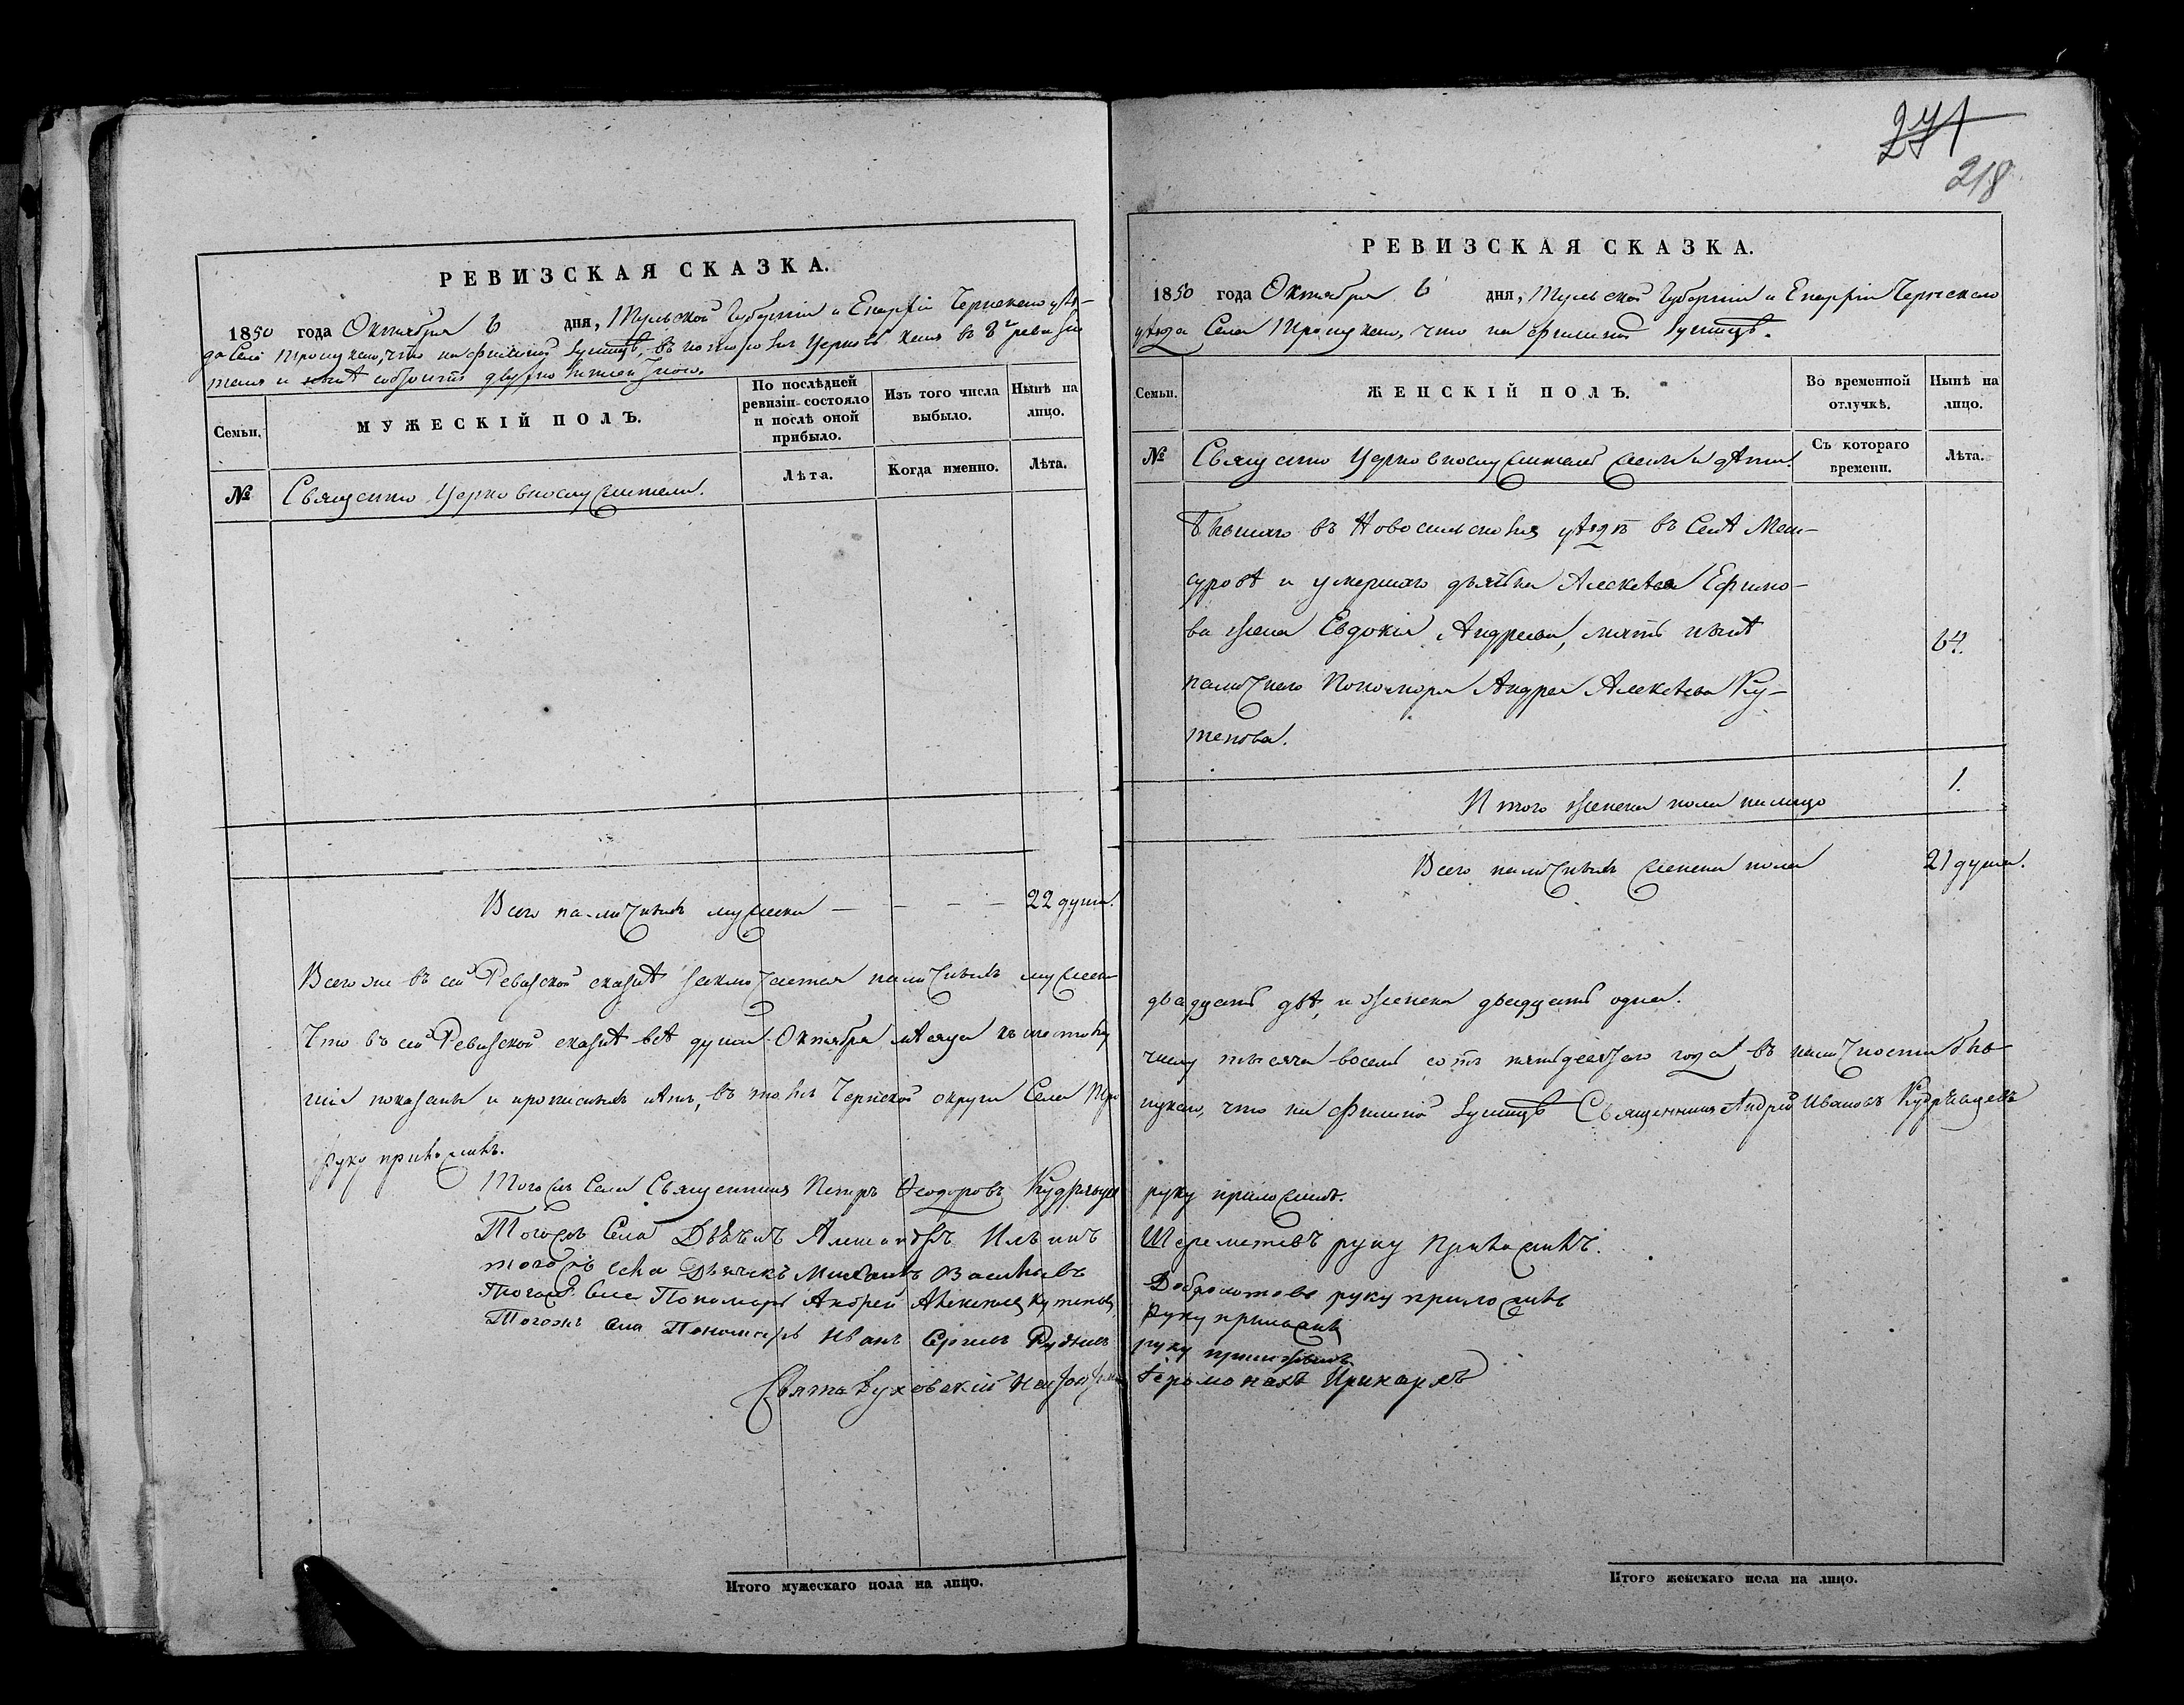 РЕВИЗСКАЯ СКАЗКА.
1850 года Октября 6 дня, Тульской Губерніи и Епархіи Чернскаго уѣз-
да Села Троицкаго, что на Филиной Зушицѣ, въ которомъ церковь какъ въ 8й ревизіи
такъ и нынѣ состоитъ двуштатною.
Семьи.
МУЖЕСКІЙ ПОЛЪ.
По послѣдней ревизіи состояло и послѣ оной прибыло.
Изъ того числа выбыло.
Нынѣ на лицо.
№
Священно Церковнослужители.
Лѣта.
Когда именно.
Лѣта.
Всего наличныхъ мужеска — — — — 22 души.
Всего же въ сей Ревизской сказкѣ заключается наличныхъ мужеска
Что въ сей Ревизской сказкѣ всѣ души Октября мѣсяца къ шестому
шія показаны и прописныхъ нѣтъ, въ томъ Чернской округи Села Тро
руку приложилъ.
Тогожъ Села Священникъ Петръ Ѳеодоровъ Кудрявцев
Тогожъ Села Дьячекъ Александръ Ильинъ
тогожъ села Дьячекъ Михаилъ Васильевъ
Тогожъ Села Пономарь Андрей Алексѣевъ Кутеповъ
Тогожъ села Пономарь Иванъ Сергѣевъ Рудневъ
Свято Духовскій
Итого мужескаго пола на лицо.
271
218
РЕВИЗСКАЯ СКАЗКА.
1850 года Октября 6 дня, Тульской Губерніи и Епархіи Чернскаго
уѣзда Села Троицкаго, что на Филиной Зушицѣ.
Семьи.
ЖЕНСКІЙ ПОЛЪ.
Во временной отлучкѣ.
Нынѣ на лицо.
№
Священно Церковнослужителей жены и дѣти.
Съ котораго времени.
Лѣта.
Бывшаго въ Новосильскомъ уѣздѣ въ Селѣ Ман-
суровѣ и умершаго дьячка Алексѣя Ефимо-
ва жена Евдокія Андреева, мать нынѣ 64.
наличнаго Пономаря Андрея Алексѣева Ку-
тепова.
Итого женска пола налицо 1.
Всего наличныхъ женска пола 21 душа.
двадцать двѣ, и женска двадцать одна.
числу тысяча восемь сотъ пятьдесятаго года въ наличности быв-
ицкаго, что на Филиной Зушицѣ Священникъ Андрей Ивановъ Кудрявцевъ
руку приложилъ.
Шереметевъ руку приложилъ.
Доброхотовъ руку приложилъ
руку приложилъ
руку приложилъ
Іеромонахъ
Итого женскаго пола на лицо.